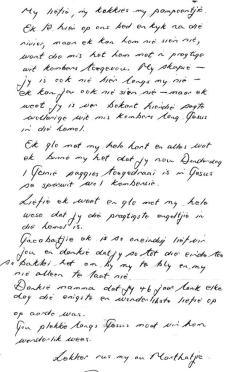 My liefie, my hekkies my pampoentjie.
Ek lê hier op ons bed en kyk na die
rivier, maar ek kan hom nie sien nie,
want die mis het hom met 'n pragtige
wit kombers toegevou. My skapie –
jy is ook nie hier langs my nie –
ek kan jou ook nie sien nie – maar ek
weet jy is ver bokant hierdie sagte
wollerige wit mis kombers langs Jesus
in die hemel.
Ek glo met my hele hart en alles wat
ek binne my het dat jy nou Donderdag
1 Junie paggies toegedraai is in Jesus
se spesiale wit kombersie.
Liefie ek weet en glo met my hele
wese dat jy die pragtigste engeltjie in
die hemel is.
ek is so oneindig lief vir
jou en dankie dat jy so tot die einde toe
so baklei het om by my te bly en my
nie alleen te laat nie.
Dankie mamma dat jy 46 jaar lank elke
dag die enigste en wonderlikste liefie op
op aarde was.
Jou plekke langs Jesus moet vir hom
wonderlik wees.
Lekker rus my ou Marthatjie.